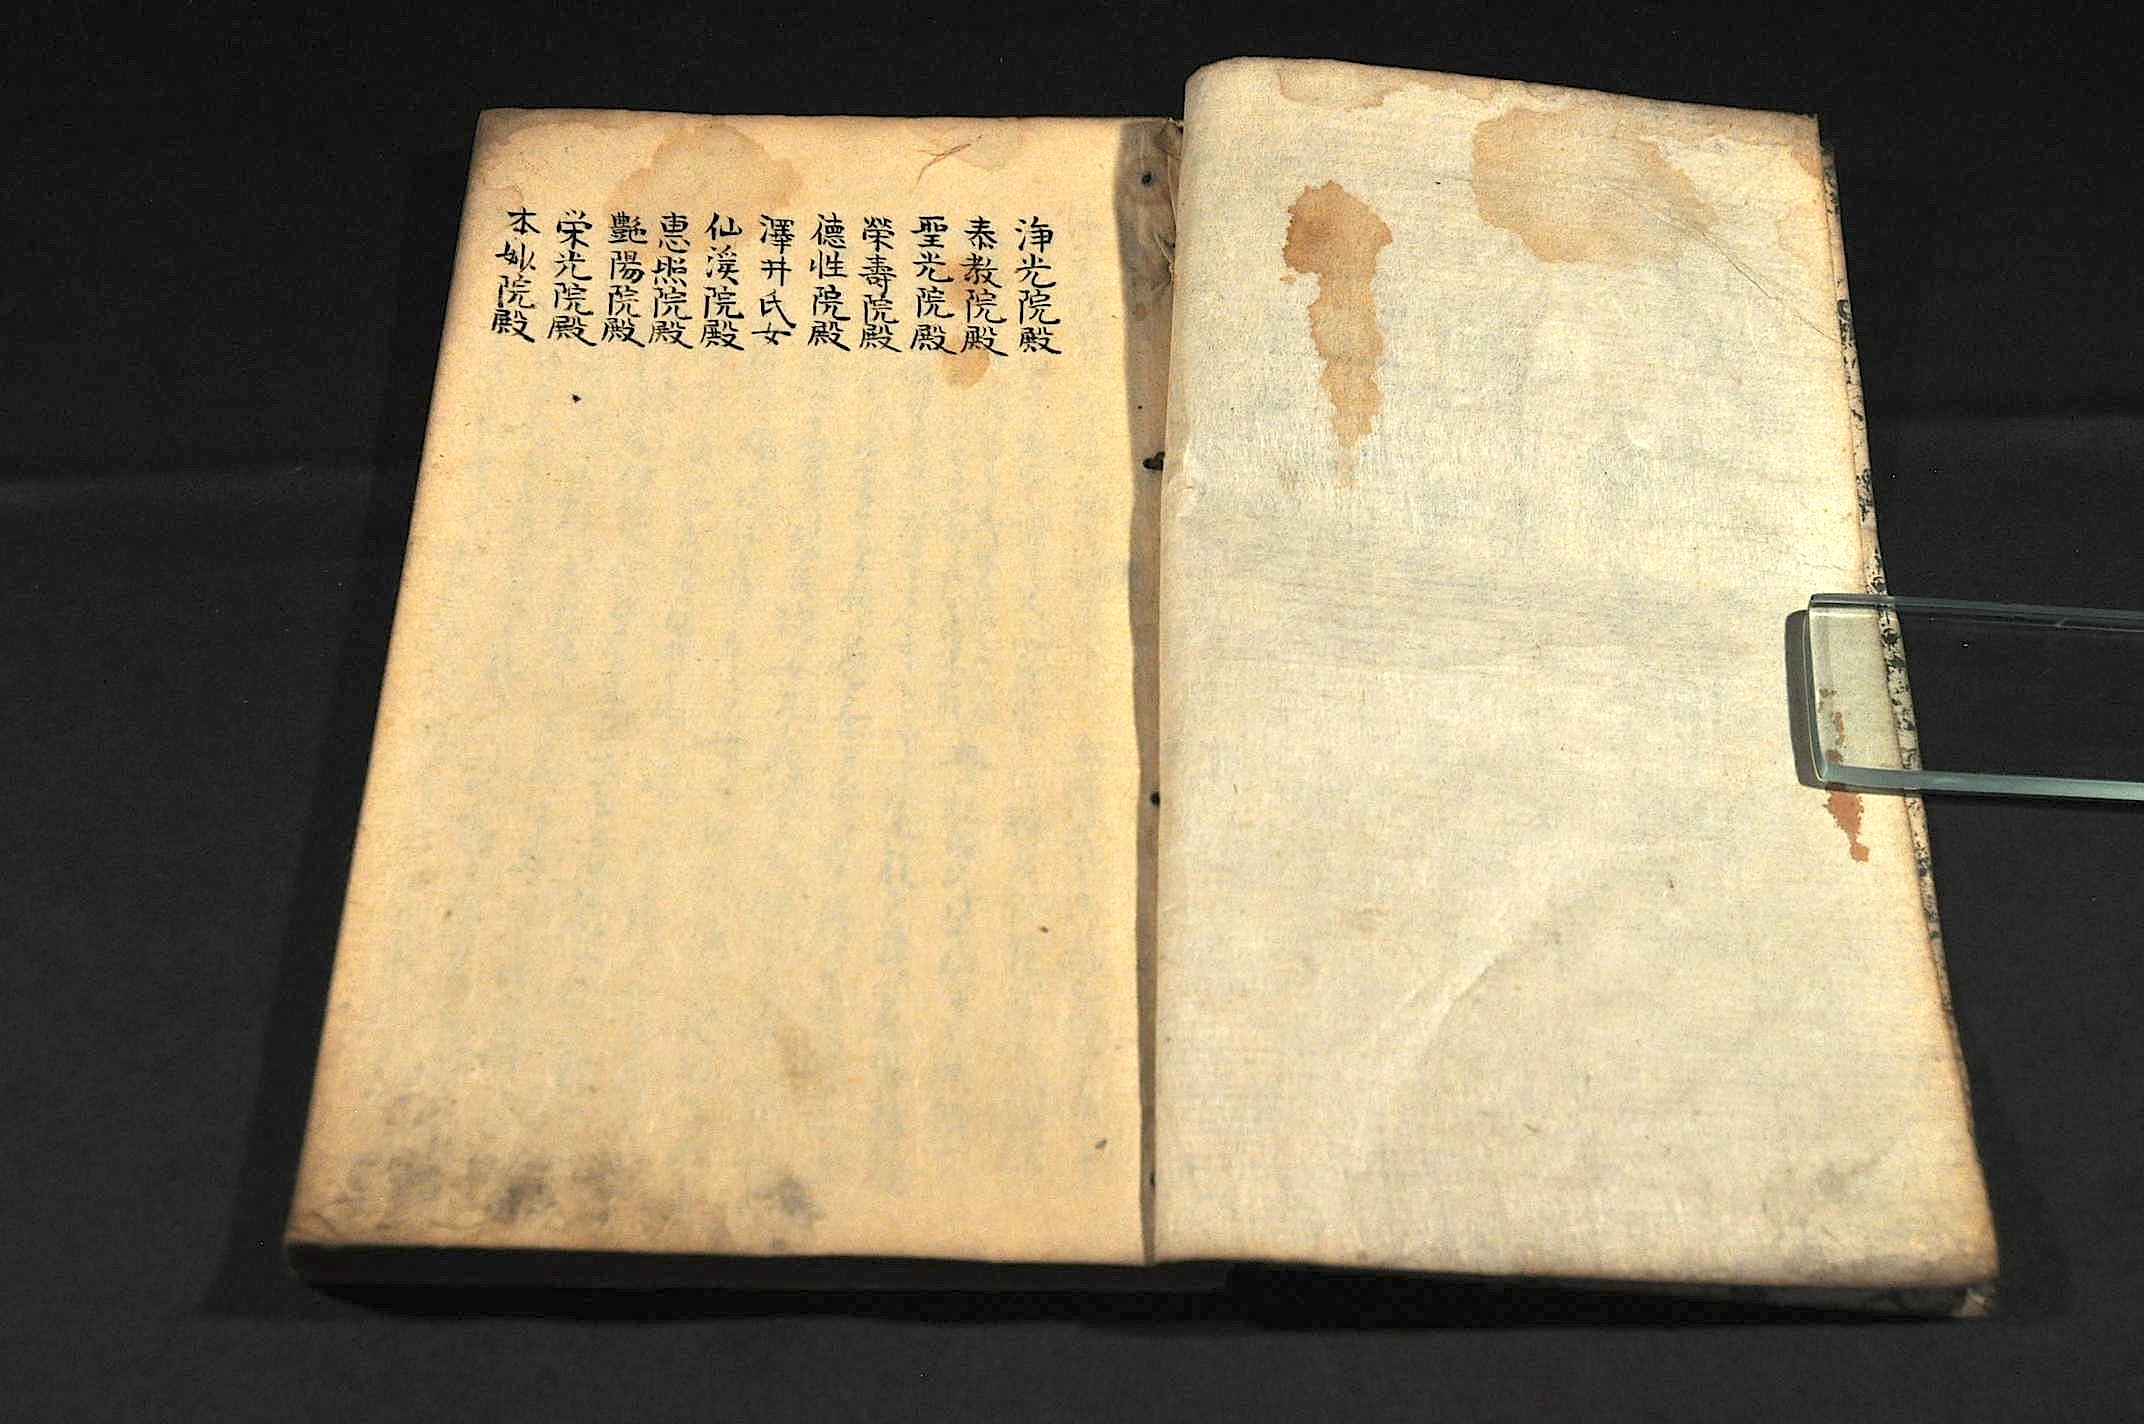 浄光院殿
泰教院殿
聖光院殿
榮壽院殿
德性院殿
澤井氏女
仙渓院殿
惠照院殿
艶陽院殿
栄光院殿
本妙院殿